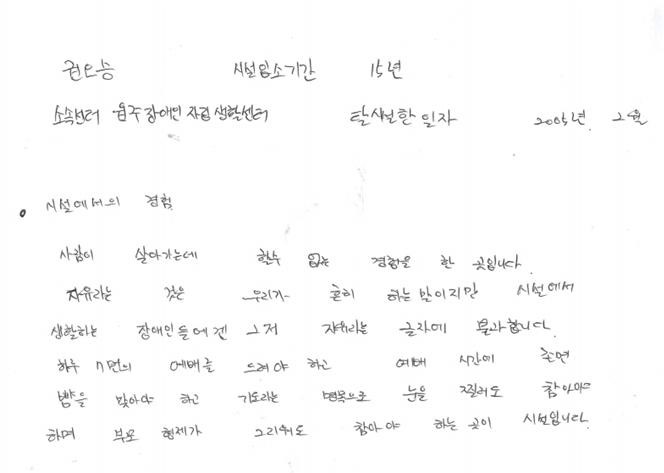 권오승 시설입소기간 15년
소속센터 광주장애인자립생활센터 탈시설한 일자 2005년 2월
시설에서의 경험
사람이 살아가는데 할수 없는 경험을 한 곳입니다
자유라는 것은 우리가 흔히 하는말이지만 시설에서
생활하는 장애인들에겐 그저 자유라는 글자에 불과합니다
하루 7번의 예배를 드려야 하고 예배 시간에 졸면
뺨을 맞아야 하고 기도라는 명목으로 눈을 찔려도 참아야
하며 부모 형제가 그리워도 참아야 하는 곳이 시설입니다.